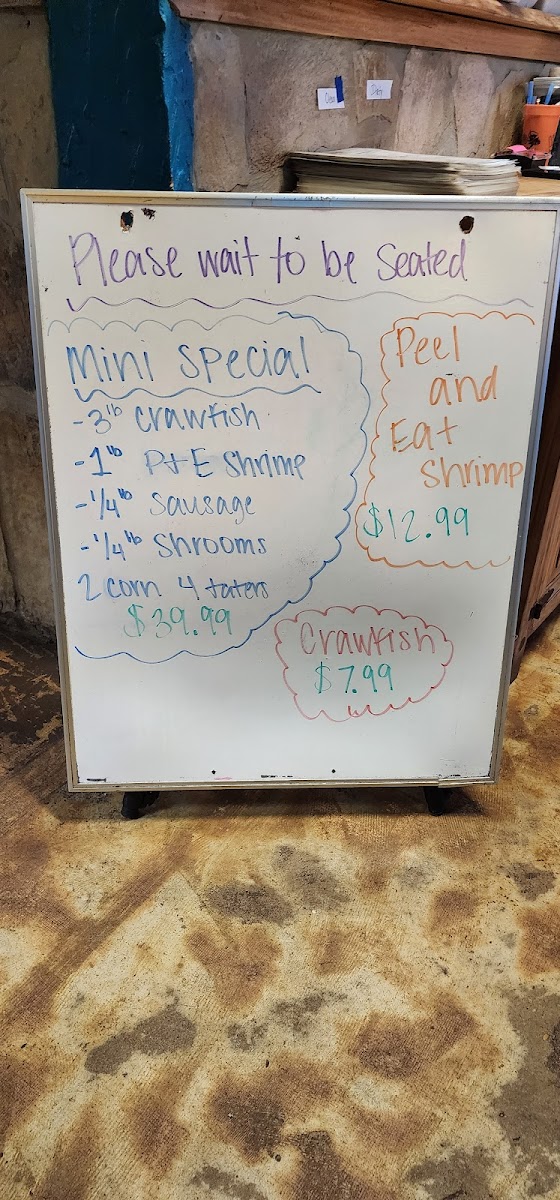 Please wait to be Seated
Mini Special
-3lb Crawfish
-1lb P+E Shrimp
-1/4lb Sausage
-1/4lb Shrooms
2 corn 4 taters
$39.99
Peel
and
Eat
Shrimp
$12.99
Crawfish
$7.99